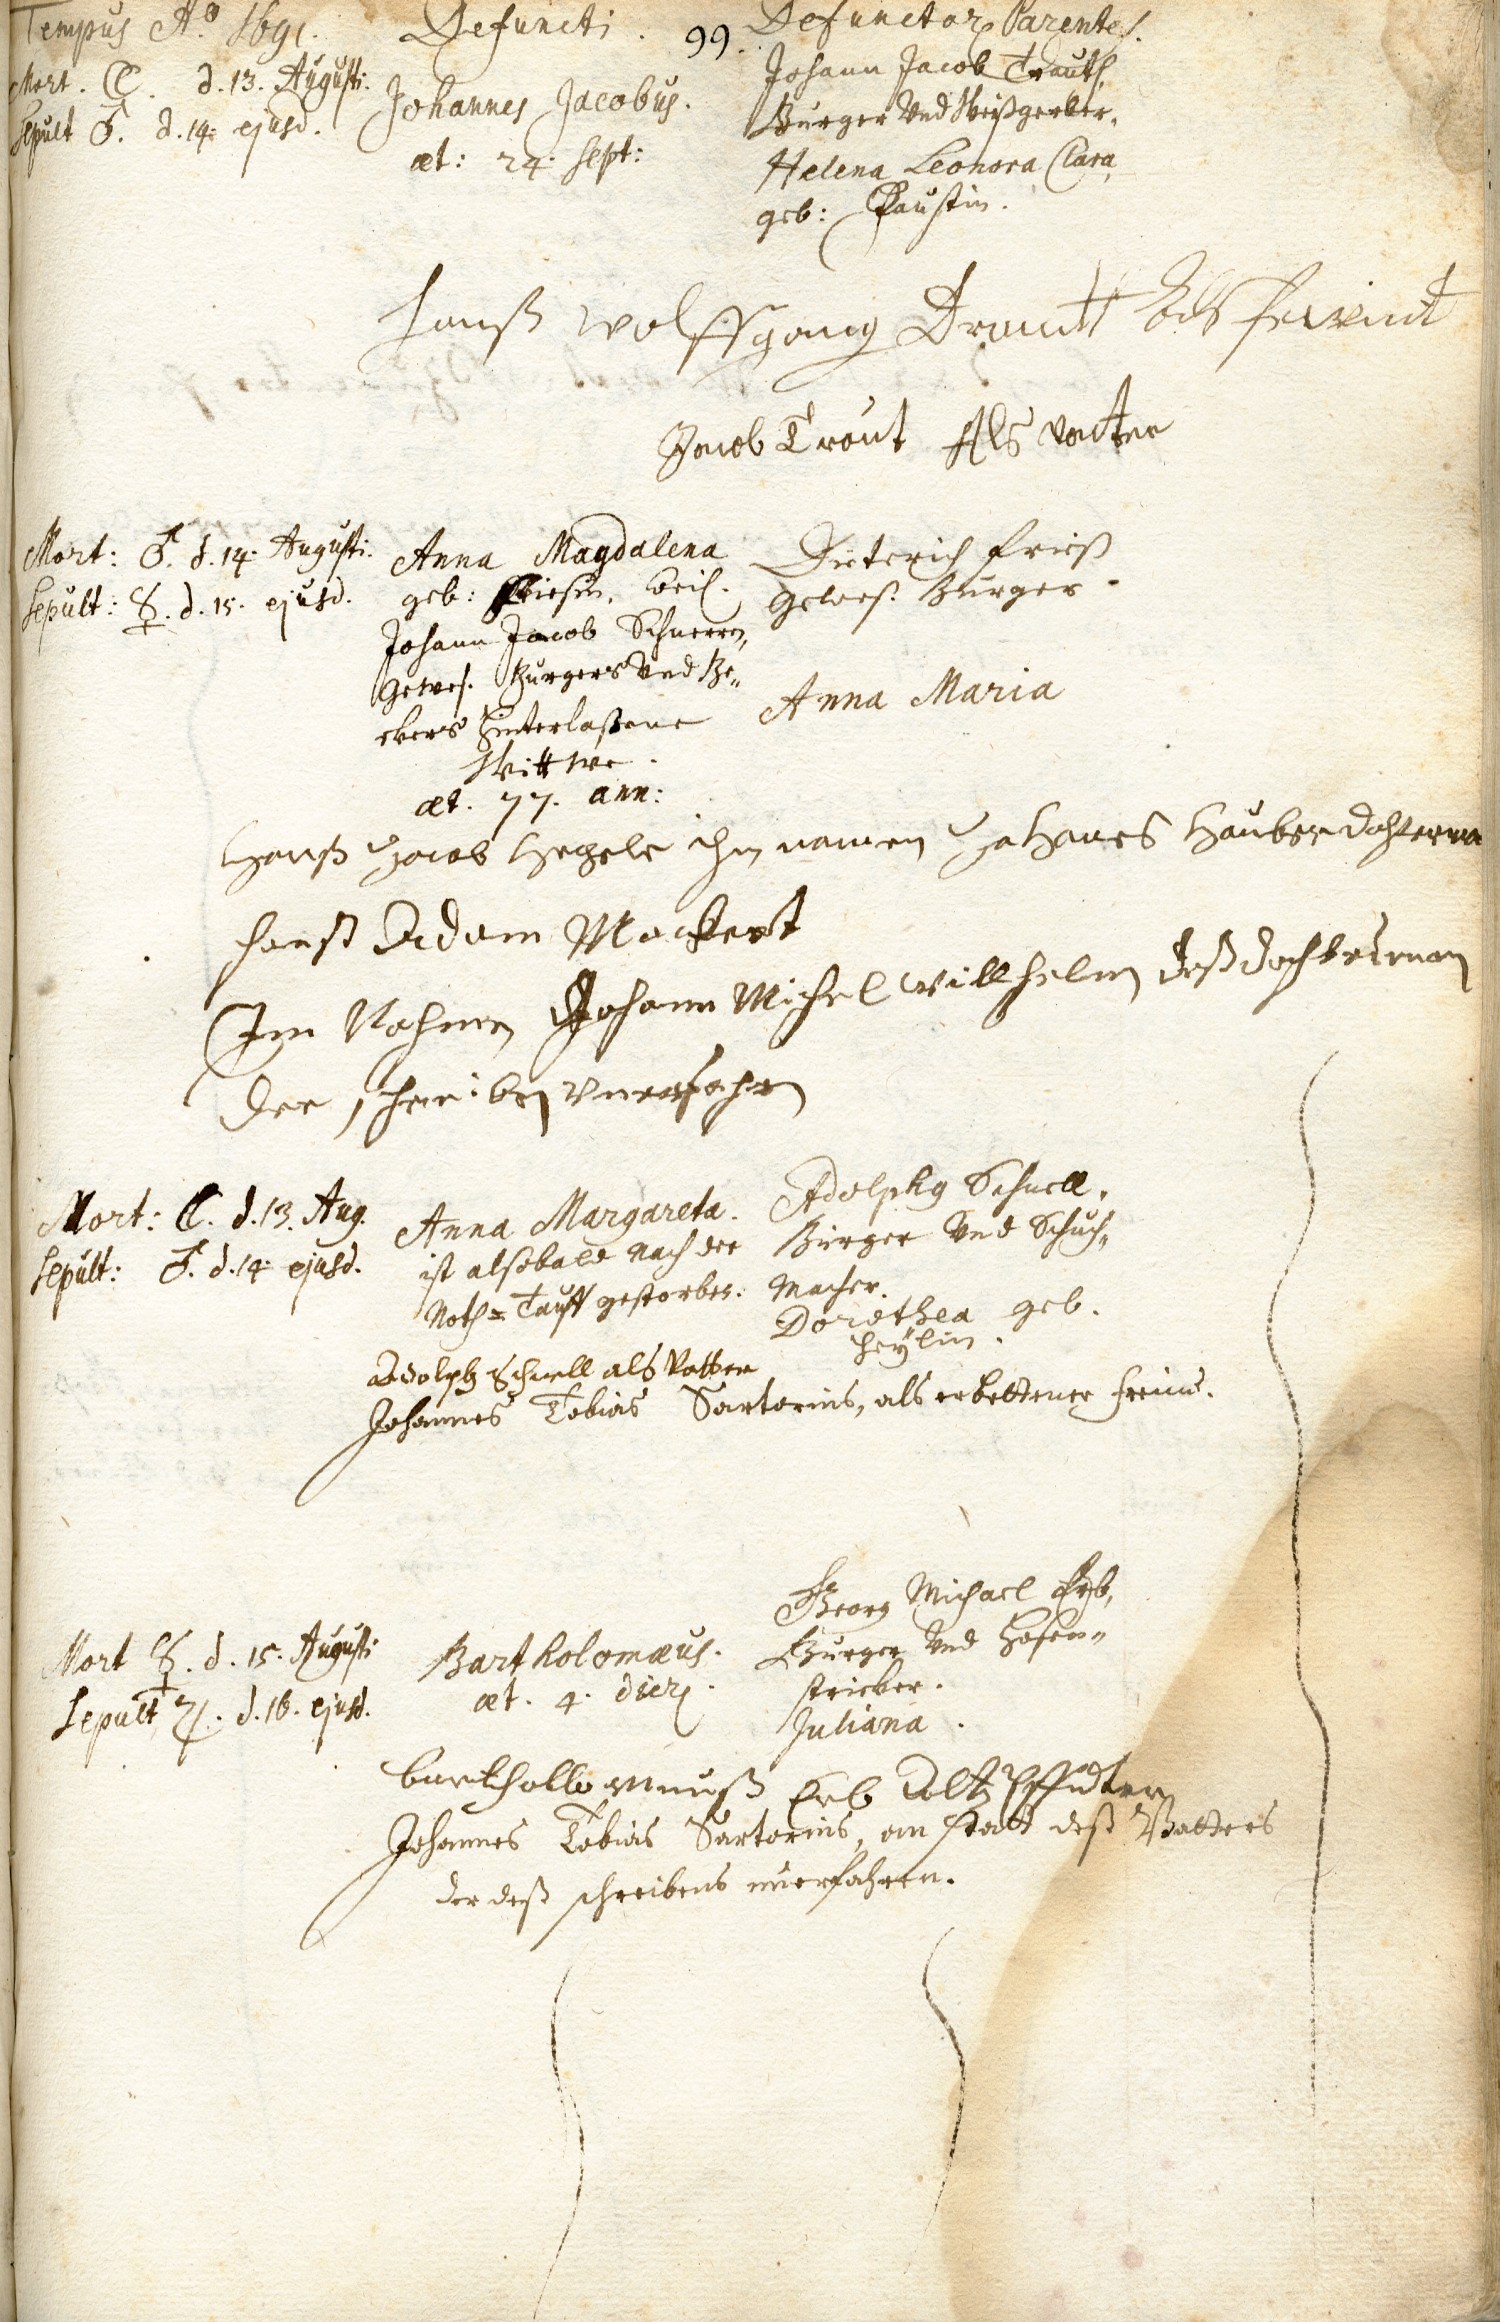 Tempus Aº 1691. Defuncti. 99. Defunctor Parentes.
Mort. ☾. d. 13. Augusti.
Sepult ♂. d. 14. ejusd.
Johannes Jacobus.
æt: 24. Sept:
Johann Jacob Trauth,
Burger Vnd Weißgerber.
Helena Leonora Clara,
geb: Faustin.
Hanß Wolffgang Drautt als freindt
Jacob Traut Als vatter
Mort: ♂. d. 14. Augusti.
Sepult: ☿. d. 15. ejusd.
Anna Magdalena
geb: Friesin, weil.
Johann Jacob Schnerren,
Gewes. Burgers Vnd Be„
ckers hinterlaßene
Wittwe.
æt. 77. ann:
Dieterich Frieß
Gewes. Burger.
Anna Maria
Hanß Jacob Hegele ihm namen Johanes Hauber dochterma
Hanß Adam Mackert
Im Nahmen Johann Michel Willhelm deß dochtermann
der schreiben vnerfahren
Mort: ☾. d. 13. Aug.
Sepult: ♂. d. 14. ejusd.
Anna Margareta.
ist alsobald nach der
Noth=Tauff gestorben.
Adolph Schnell,
Burger Vnd Schuch„
macher.
Dorothea geb.
Heylin.
Adolph Schnell als Vatter
Johannes Tobias Sartorius, als erbettener freind.
Mort ☿. d. 15. Augusti
Sepult ♃. d. 16. ejusd.
Bartholomæus.
æt. 4. dier.
Georg Michael Erb,
Burger Vnd Hosen„
stricker.
Juliana.
Barthollomeuß Erb
Johannes Tobias Sartorius, an statt deß Vatters
der deß schreibens unerfahren.